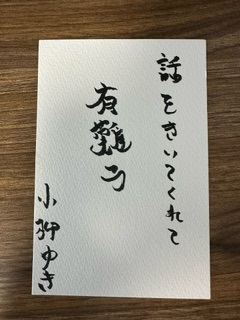 話をきいてくれて
有難う
小柳ゆき